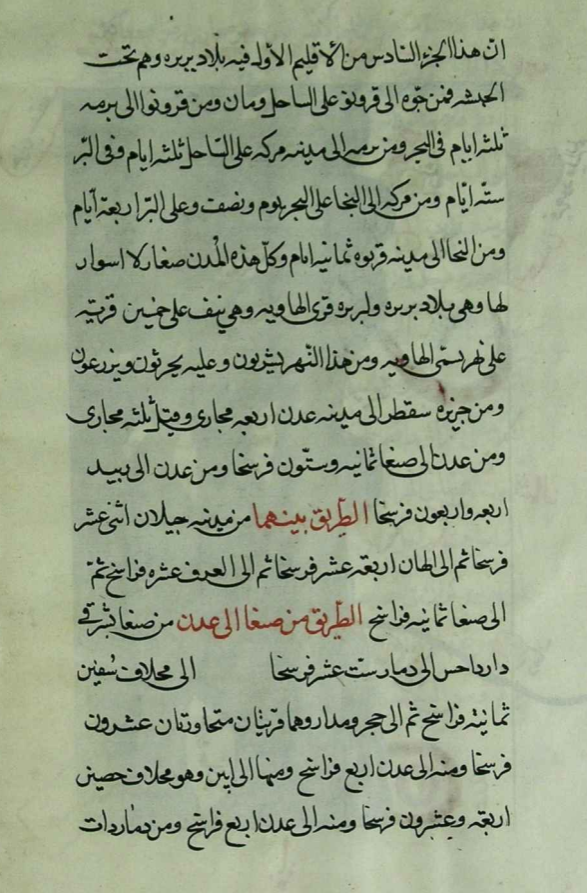 ان هذا الجزء السادس من الاقليم الاول فيه بلاد بربره وهم تحت
الحبشه فمن جوه الى قرونوا على الساحل ومان ومن قرونوا الى برمه
ثلثه ايام فى البحر ومن برمه الى مدينه مركه على الساحل ثلثه ايام وفى البر
سته ايام ومن مركه الى النجا على البحر يوم ونصف وعلى البر اربعة ايام
ومن النجا الى مدينه قربوه ثمانيه ايام وكل هذه المدن صغار لا اسوار
لها وهى بلاد بربره ولبربره قرى الهاويه وهى نيف على خمسين قريه
على نهر يسمى الهاويه ومن هذا النهر يشربون وعليه يحرثون ويزرعون
ومن جزيره سقطر الى مدينه عدن اربعه مجارى وقيل ثلثه مجارى
ومن عدن الى صنعا ثمانيه وستون فرسخا ومن عدن الى بيد
اربعه واربعون فرسخا الطريق بينهما من مدينه جيلان اثنى عشر
فرسخا ثم الى الهان اربعة عشر فرسخا ثم الى العرف عشره فراسخ ثم
الى صنعا ثمانيه فراسخ الطريق من صنعا الى عدن من صنعا شرقى
الى دمار ست عشر فرسخا الى مخلاف سفين
ثمانية فراسخ ثم الى حجر ومدار وهما قريتان متجاورتان عشرون
فرسخا ومنه الى عدن اربع فراسخ ومنها الى ابين وهو مخلاف حصين
اربعة وعشرون فرسخا ومنه الى عدن اربع فراسخ ومن دمار ذات